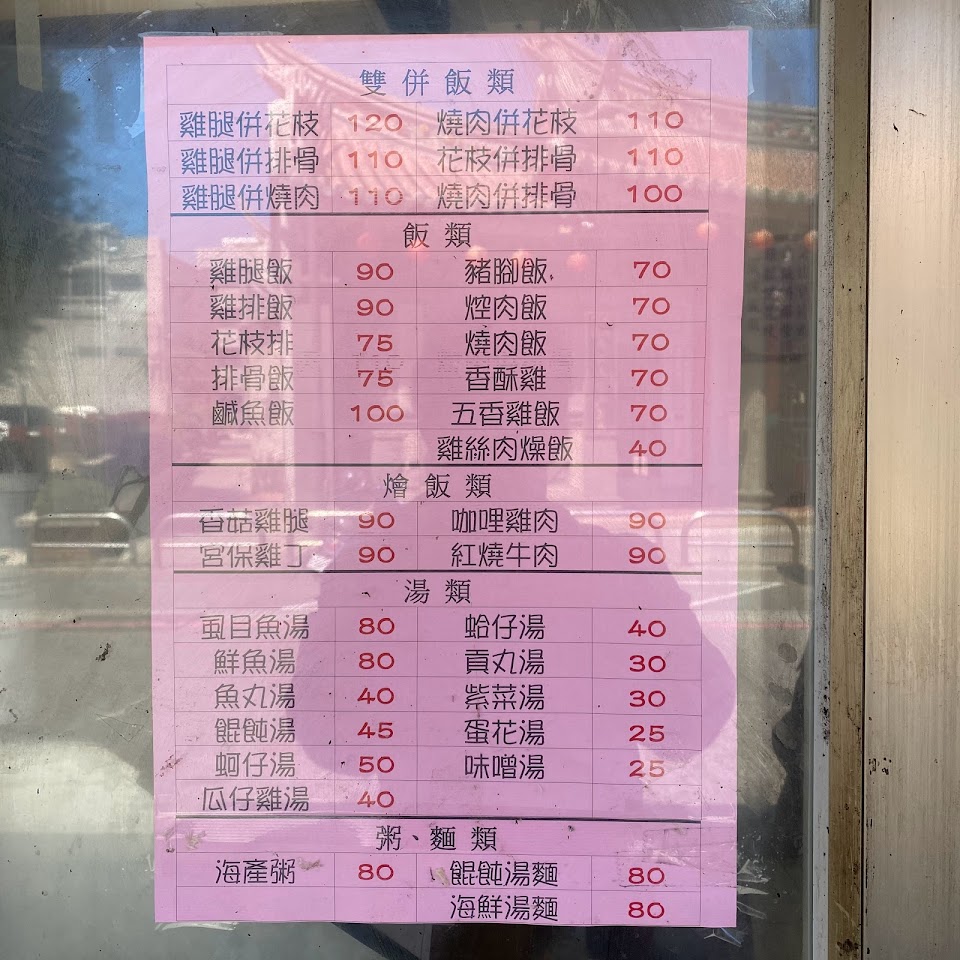 雙併飯類
雞腿併花枝 120 燒肉併花枝 110
雞腿併排骨 110 花枝併排骨 110
雞腿併燒肉 110 燒肉併排骨 100
飯類
雞腿飯 90 豬腳飯 70
雞排飯 90 焢肉飯 70
花枝排 75 燒肉飯 70
排骨飯 75 香酥雞 70
鹹魚飯 100 五香雞飯 70
雞絲肉燥飯 40
燴飯類
香菇雞腿 90 咖哩雞肉 90
宮保雞丁 90 紅燒牛肉 90
湯類
虱目魚湯 80 蛤仔湯 40
鮮魚湯 80 貢丸湯 30
魚丸湯 40 紫菜湯 30
餛飩湯 45 蛋花湯 25
蚵仔湯 50 味噌湯 25
瓜仔雞湯 40
粥、麵類
海產粥 80 餛飩湯麵 80
海鮮湯麵 80